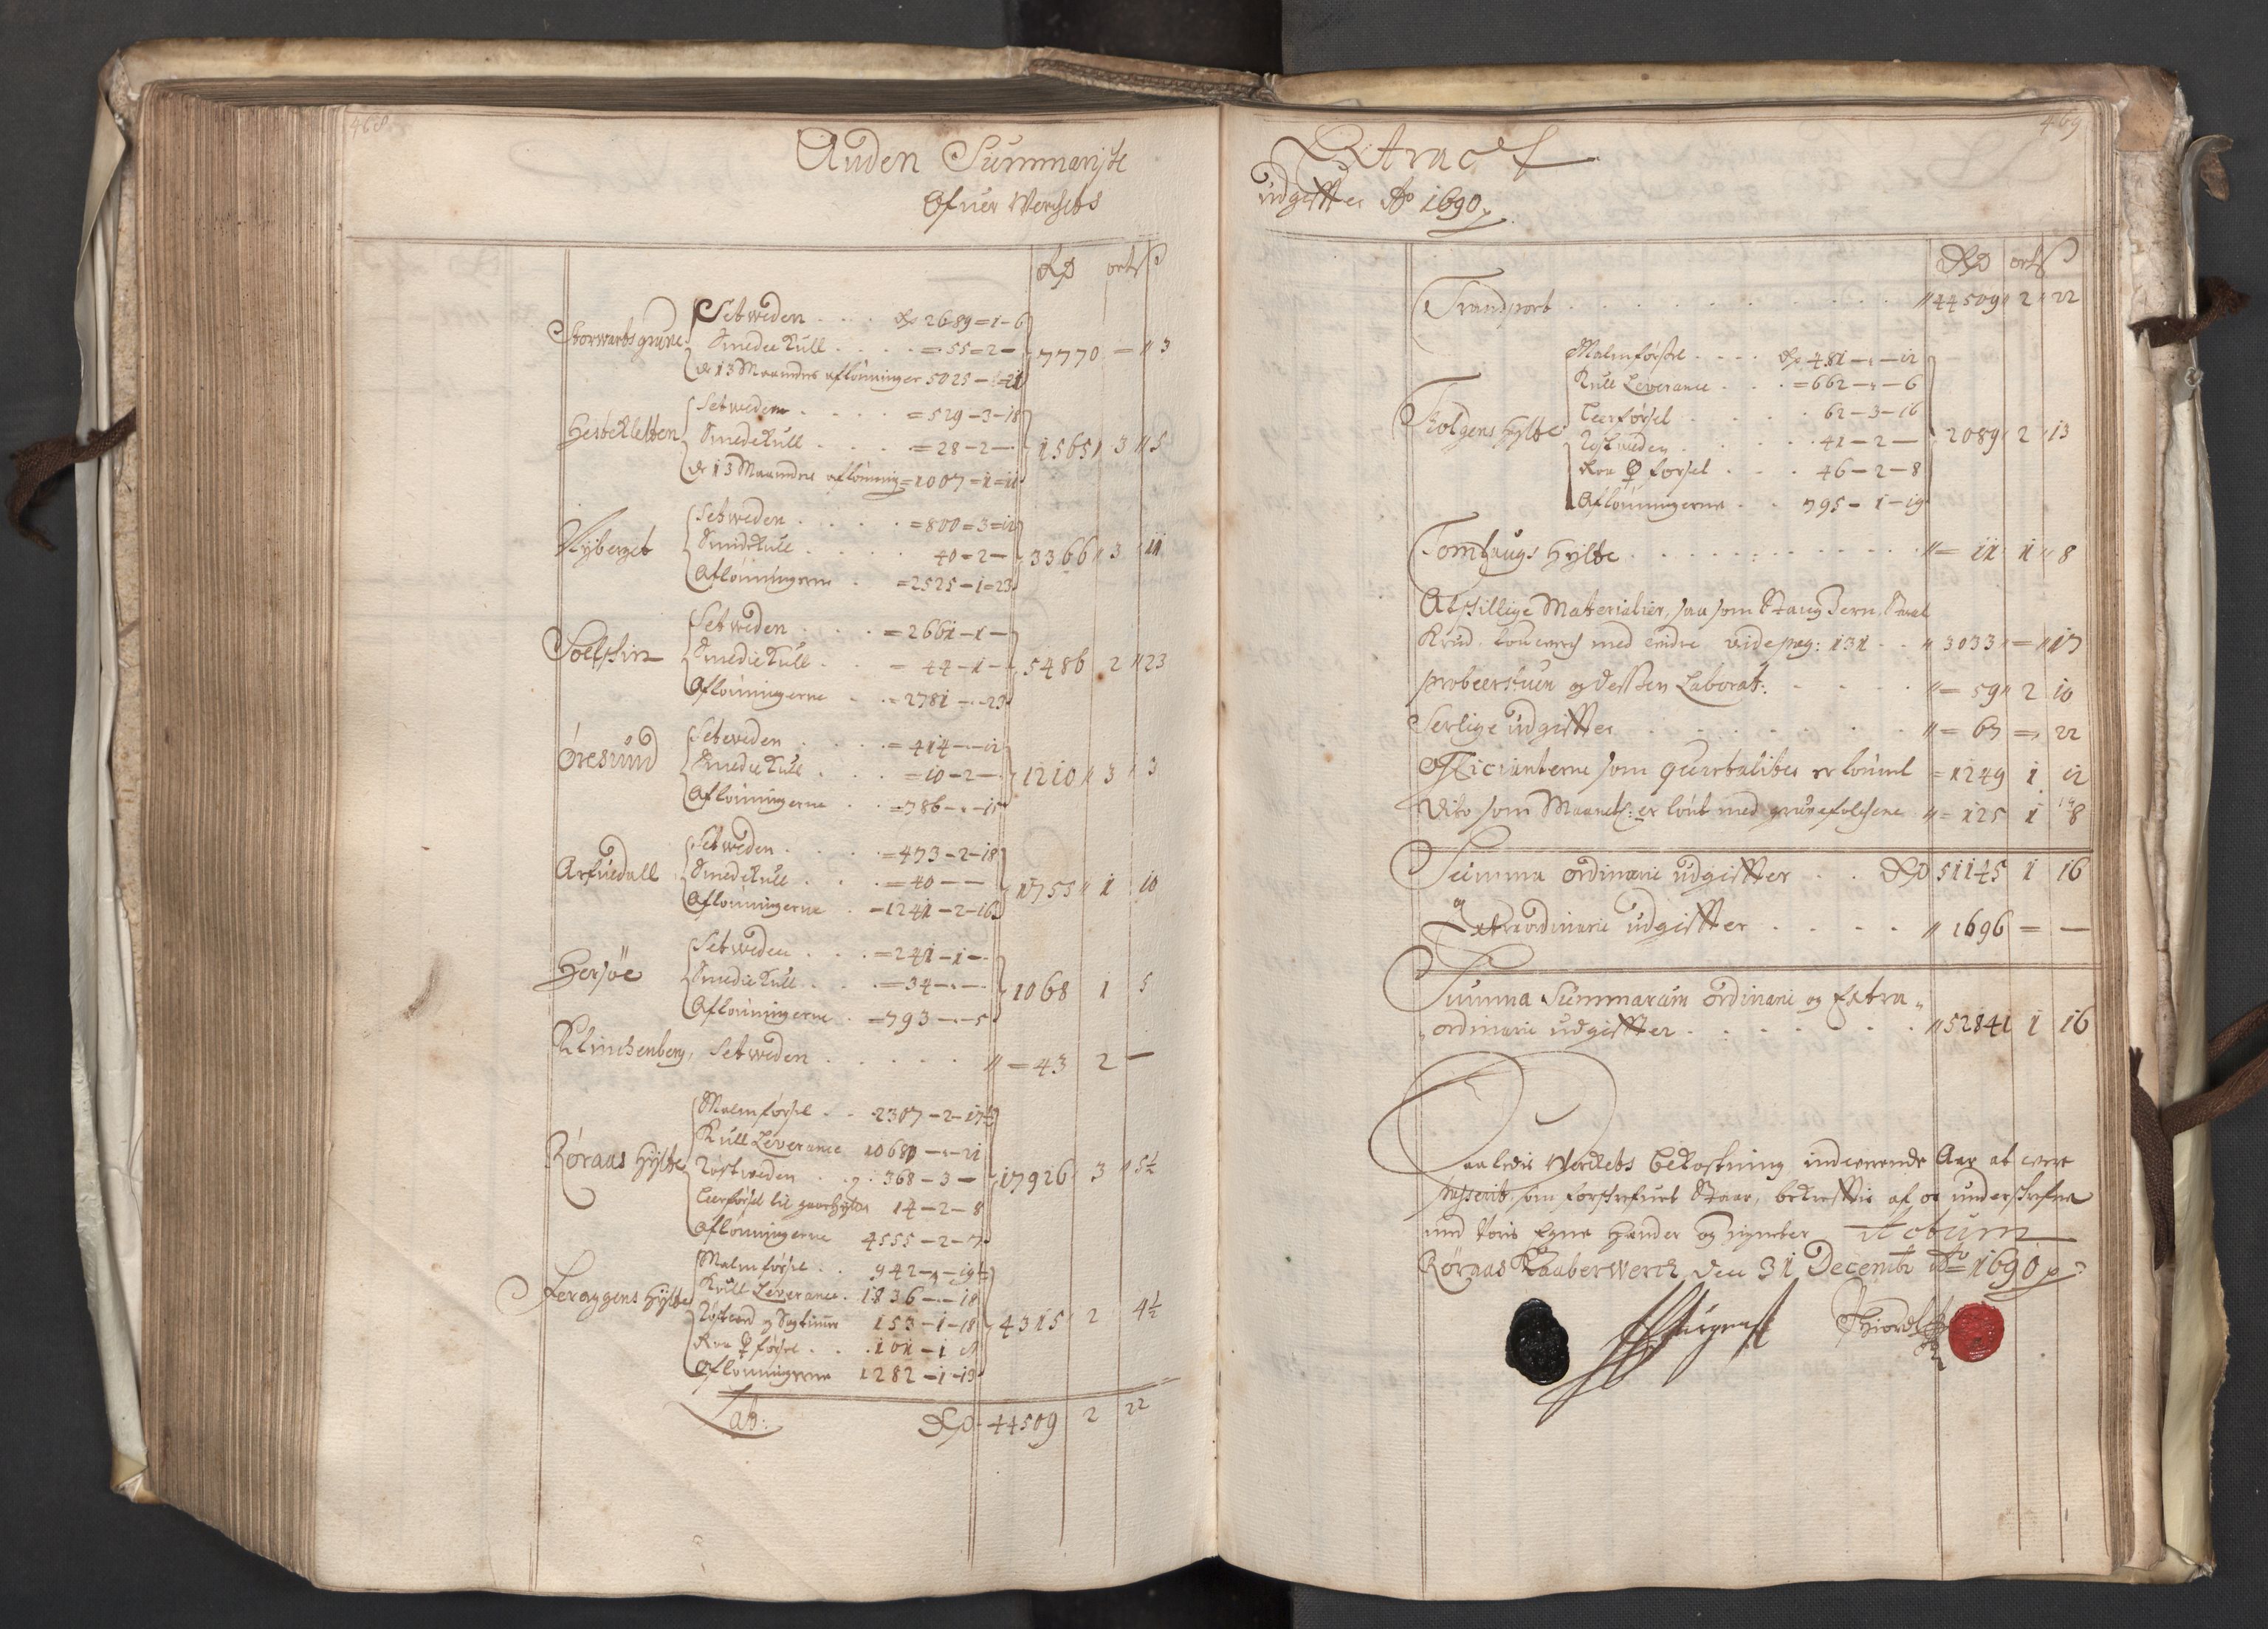 468
Anden Summariske
Ofuer Werchets
RD ort ß
Storwarts grube
Setweden . . . Rd 2689 = 1 - 6
Smedie Kull . . . = 55 = 2 -
de 13 Maaneders aflønninger 5025 - 7770 = " 3
Hestekletten
Setweden . . . . = 529 - 3 - 18
Smedekull . . . = 28 - 2 -
de 13 Maaneders aflønning = 1007 = 1 = 11 1565 " 3 " 5
Nyberget
Setweden . . . . = 800 = 3 = 12
Smidekull . . . . 40 = 2 -
Aflønningerne . = 2525 - 1 = 23 3366 " 3 " 11
Solskin
Setweden . . . . = 2661 - 1 -
Smedie Kull . . . = 44 - 1 -
Aflønningerne . . = 2781 - - 23 5486 2 " 23
Øresund
Setweden . . . . = 414 - - 12
Smedie Kull . . . = 10 - 2 -
Aflønningerne . . = 786 - - 15 1210 " 3 " 3
Arfuedall
Setweden . . . . = 473 - 2 - 18
Smedekull . . . = 40 - -
Aflønningerne . = 1241 - 2 - 16 1755 " 1 10
Hersøe
Setweden . . . = 241 - 1 -
Smedie Kull . . . = 34 - -
Aflønningerne . = 793 - - 5 1068 1 5
Klinchenberg, Setweden . . . . . " = 43 2 -
Røraas Hytte
Malmførsel . . 2307 - 2 - 17½
Kull Leverance 10680 - - 21
Røstweden . . 368 - 3 -
Leerførsel til gaarhytten 14 - 2 - 8
Aflønningerne 4555 - 2 - 7 17926 3 " 5½
Feragens Hytte
Malmførsel . . 942 - - 19½
Kull Leverance . 1836 - - 18
Røstved og Sagtimmer 153 - 1 - 18
Raa ♀ førsel . . . 101 - 1
Aflønningerne 1282 - 1 - 13 4315 2 4½
Lat: RD 44509 2 22
469
Extract
udgiffter Ao 1690
RD ort ß
Transport . . . . . . . . . . " 44509 " 2 " 22
Tolgens Hytte
Malmførsel . . . . Rd 481 - - 12
Kull Leverance . . . = 662 - - 6
Leerførsel . . . . 62 - 3 - 16
Røstveden . . . . 41 - 2 -
Raa ♀ førsel . . . 46 - 2 - 8
Aflønningerne . . 795 - 1 - 19 2089 2 13
Tomtaugs Hytte . . . . . . . . . " = 11 1 " 8
Atskillige Materialier, saa som Stang Jern, Staal
Krud med andre vide pag: 131 . . " 3033 = " 17
Probeerstuen og dessen Laborat: . . . . " = 59 " 2 10
Serlige udgiffter . . . . . . " = 67 = 22
Officianterne som qvartaliter er lønnet = 1249 1 12
Dito som Maanetl: er lønt med grubefolchene " = 125 1 8
Summa ordinarie udgiffter . . RD 51145 1 16
Extraordinarie udgiffter . . . . " 1696 = -
Summa Summarum ordinarie og Extra "
" ordinarie udgiffter . . . . . . " 52841 1 16
Saaledis Werkets bekostning indeværende Aar at vere
passerit, som forskrefuet Staar, bekreftis af os underskrefne
med Voris Egne Hænder og signeter Actum
Røraas Kaaberwerck den 31 Decembr Ao 1690